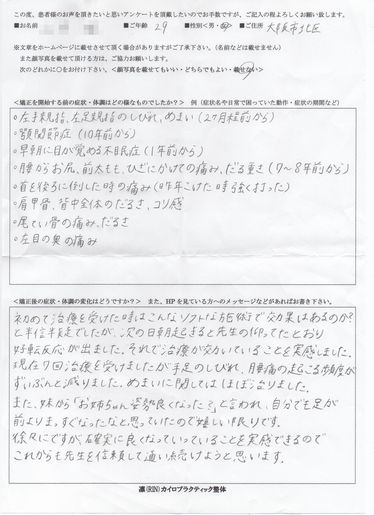 この度、患者様のお声を頂きたいと思いアンケートを頂戴したいのでお手数ですが、ご記入の程よろしくお願い致します。
■お名前 ■ご年齢 29 ■性別 <男・女> ■ご住所 大阪市北区
※文章をホームページに載せさせて頂く場合がありますがご了承下さい。(名前などは載せません)
また顔写真を載せて頂ける方は、ご協力お願いします。
次のどれかに〇をお付け下さい。<顔写真を載せてもいい・どちらでもよい・載せない>
<矯正を開始する前の症状・体調はどの様なものでしたか? 例(症状名や日常で困っていた動作・症状の期間など)
○左手親指、左足親指のしびれ、めまい(2ヶ月程前から)
○顎関節症(10年前から)
○早朝に目が覚める不眠症(1年前から)
○腰からお尻、前太もも、ひざにかけての痛み、だる重さ(7〜8年前から)
○首を後ろに倒した時の痛み(昨年こけた時強く打った)
○肩甲骨、背中全体のだるさ、コリ感
○尾てい骨の痛み、だるさ
○左目の奥の痛み
<矯正後の症状・体調の変化はどうですか? また、HPを見ている方へのメッセージなどがあればお書き下さい。
初めて治療を受けた時はこんなソフトな施術で効果はあるのか?
と半信半疑でしたが、次の日朝起きると先生の仰ってたとおり
好転反応が出ました。それで治療が効いていることを実感しました。
現在7回治療を受けましたが手足のしびれ、腰痛の起こる頻度が
ずいぶんと減りました。めまいに関してはほぼ治りました。
また、妹から「お姉ちゃん姿勢良くなった?」と言われ、自分でも足が
前よりまっすぐなったなと思っていたので嬉しい限りです。
徐々にですが、確実に良くなっていっていることを実感できるので
これからも先生を信頼して通い続けようと思います。
凛(RIN)カイロプラクティック整体